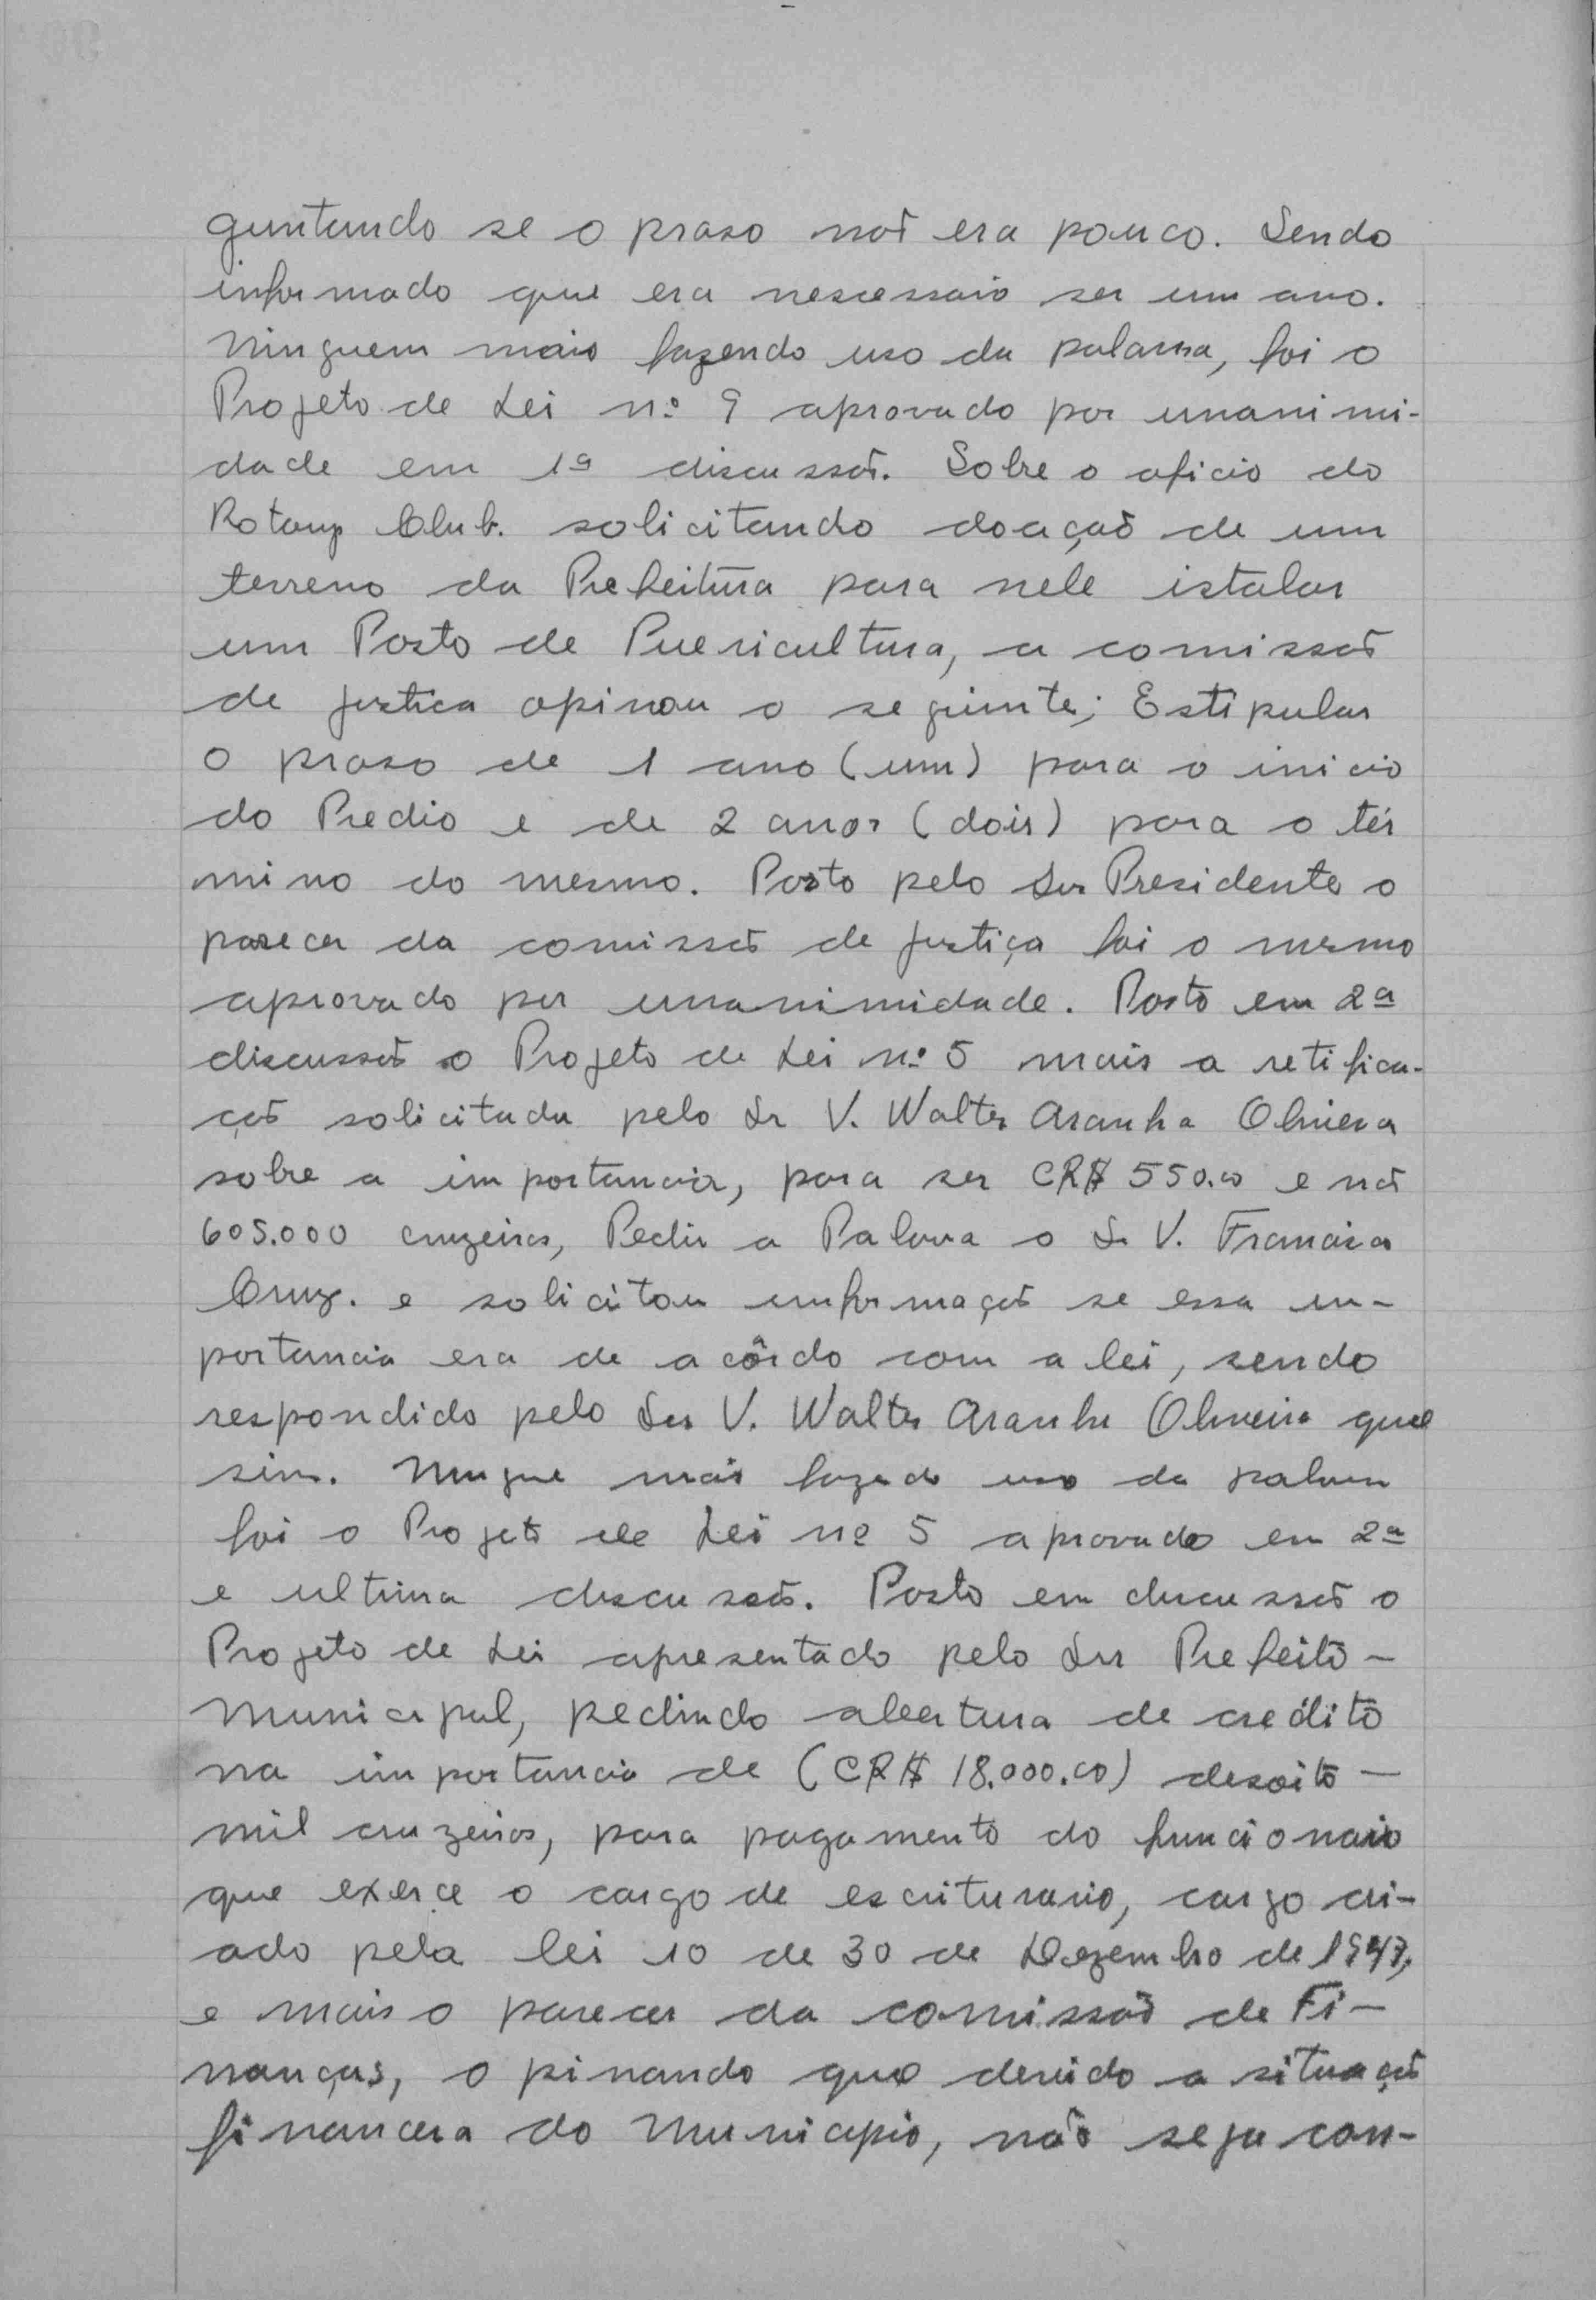 guntando se o praso não era pouco. Sendo
informado que era nescessaio ser um ano.
Ninguem mais fazendo uso da palavra, foi o
Projeto de Lei nº 9 aprovado por unanimi-
dade em 1ª discussão. Sobre o oficio do
Rotary Club. solicitando doação de um
terreno da Prefeitura para nele istalar
um Posto de Puericultura, a comissão
de justica opinou o seguinte; Estipular
o praso de 1 ano (um) para o inicio
do Predio e de 2 anos (dois) para o tér
mino do mesmo. Posto pelo Snr Presidente o
parecer da comissão de justiça foi o mesmo
aprovado por unanimidade. Posto em 2ª
discussão o Projeto de Lei nº 5 mais a retifica-
ção solicitada pelo Sr V. Walter Aranha Oliveira
sobre a importancia, para ser CR$ 550.00 e não
605.000 cruzeiros, Pediu a Palavra o Sr V. Francisco
Cruz. e solicitou informação se essa im-
portancia era de acôrdo com a lei, sendo
respondido pelo Snr V. Walter Aranha Oliveira que
sim. Ningue mais fazendo uso da palavra
foi o Projeto de Lei nº 5 aprovado em 2ª
e ultima discussão. Posto em discussão o
Projeto de Lei apresentado pelo Snr Prefeito -
Municipal, pedindo abertura de crédito
na importancia de (CR$ 18.000.00) desoito -
mil cruzeiros, para pagamento do funcionaio
que exerce o cargo de escriturario, cargo cri-
ado pela lei 10 de 30 de Dezembro de 1947,
e mais o parecer da comissão de Fi-
nanças, opinando que devido a situação
financera do Municipio, não seja con-